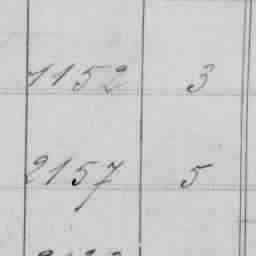 1152 3
2157 5